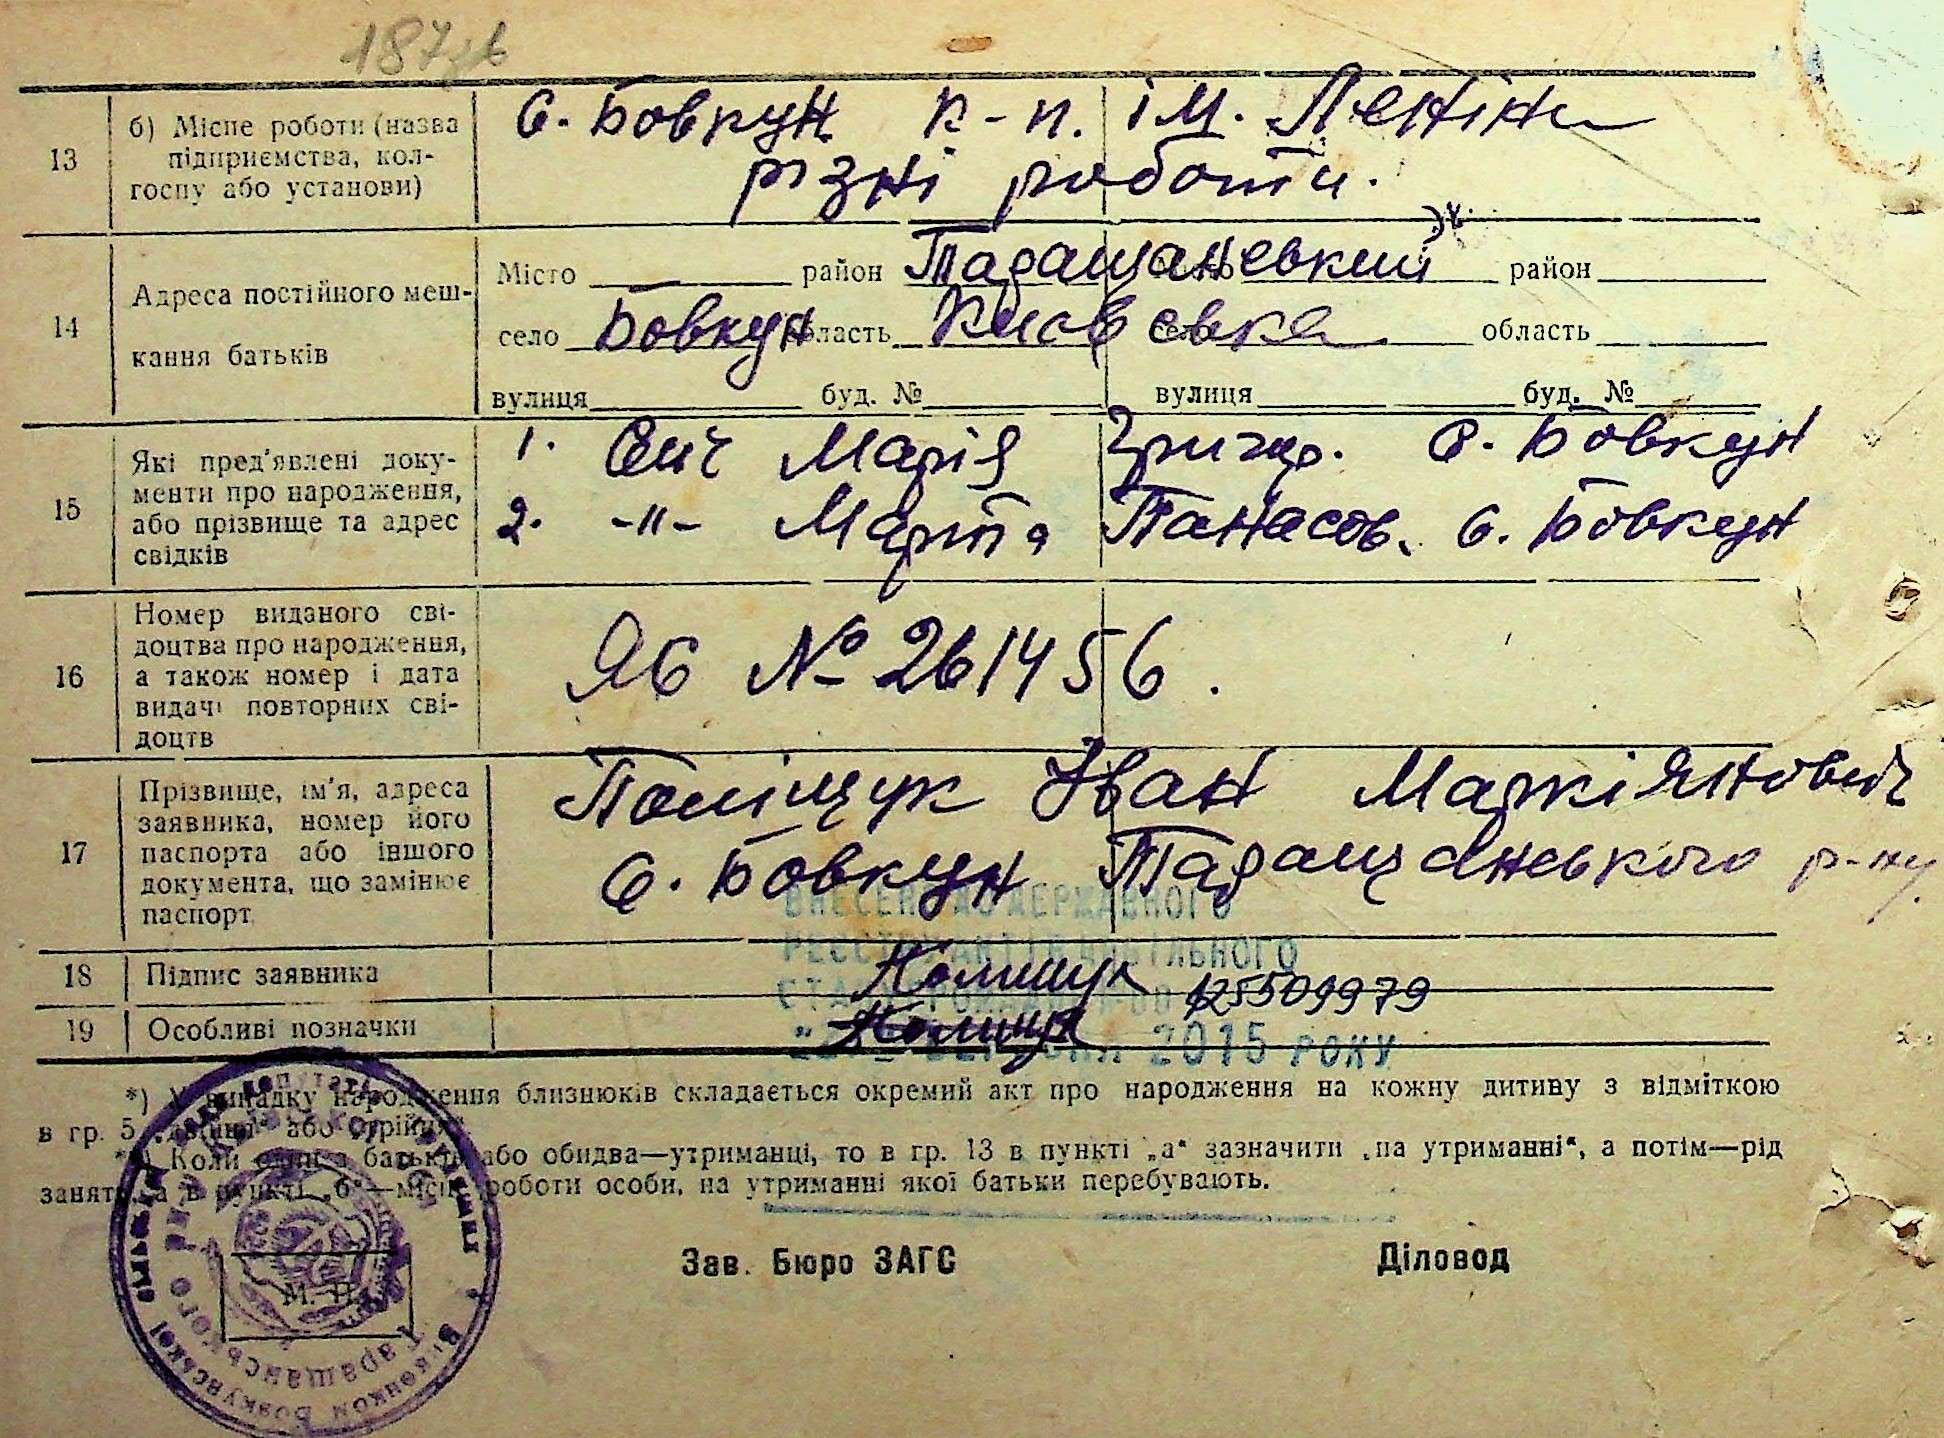 187зв
13 б) Місце роботи (назва підприємства, колгоспу або установи)
с. Бовкун к-п. ім. Леніна
різні роботи.
14 Адреса постійного мешкання батьків
Місто район Таращанський район
село Бовкун область Київська село область
вулиця буд. № вулиця буд. №
15 Які пред'явлені документи про народження, або прізвище та адрес свідків
1. Сич Марія Григор. с. Бовкун
2. -"- Марта Панасов. с. Бовкун
16 Номер виданого свідоцтва про народження, а також номер і дата видачі повторних свідоцтв
ЯБ № 261456.
17 Прізвище, ім'я, адреса заявника, номер його паспорта або іншого документа, що замінює паспорт
Поліщук Іван Маркіянович
с. Бовкун Таращанського р-ну.
ВНЕСЕНО ДО ДЕРЖАВНОГО
РЕЄСТРУ АКТІВ ЦИВІЛЬНОГО
18 Підпис заявника
Полищук
125509979
19 Особливі позначки
Полищук
2015 РОКУ
*) У випадку народження близнюків складається окремий акт про народження на кожну дитину з відміткою
в гр. 5 „двійня" або „трійня"
**) Коли один з батьків або обидва—утриманці, то в гр. 13 в пункті „а" зазначити „на утриманні", а потім—рід
заняття, а в пункті „б"—місце роботи особи, на утриманні якої батьки перебувають.
Зав. Бюро ЗАГС Діловод
М. П.
Виконком Бовкунської сільської ради депутатів трудящих
Таращанського р-ну